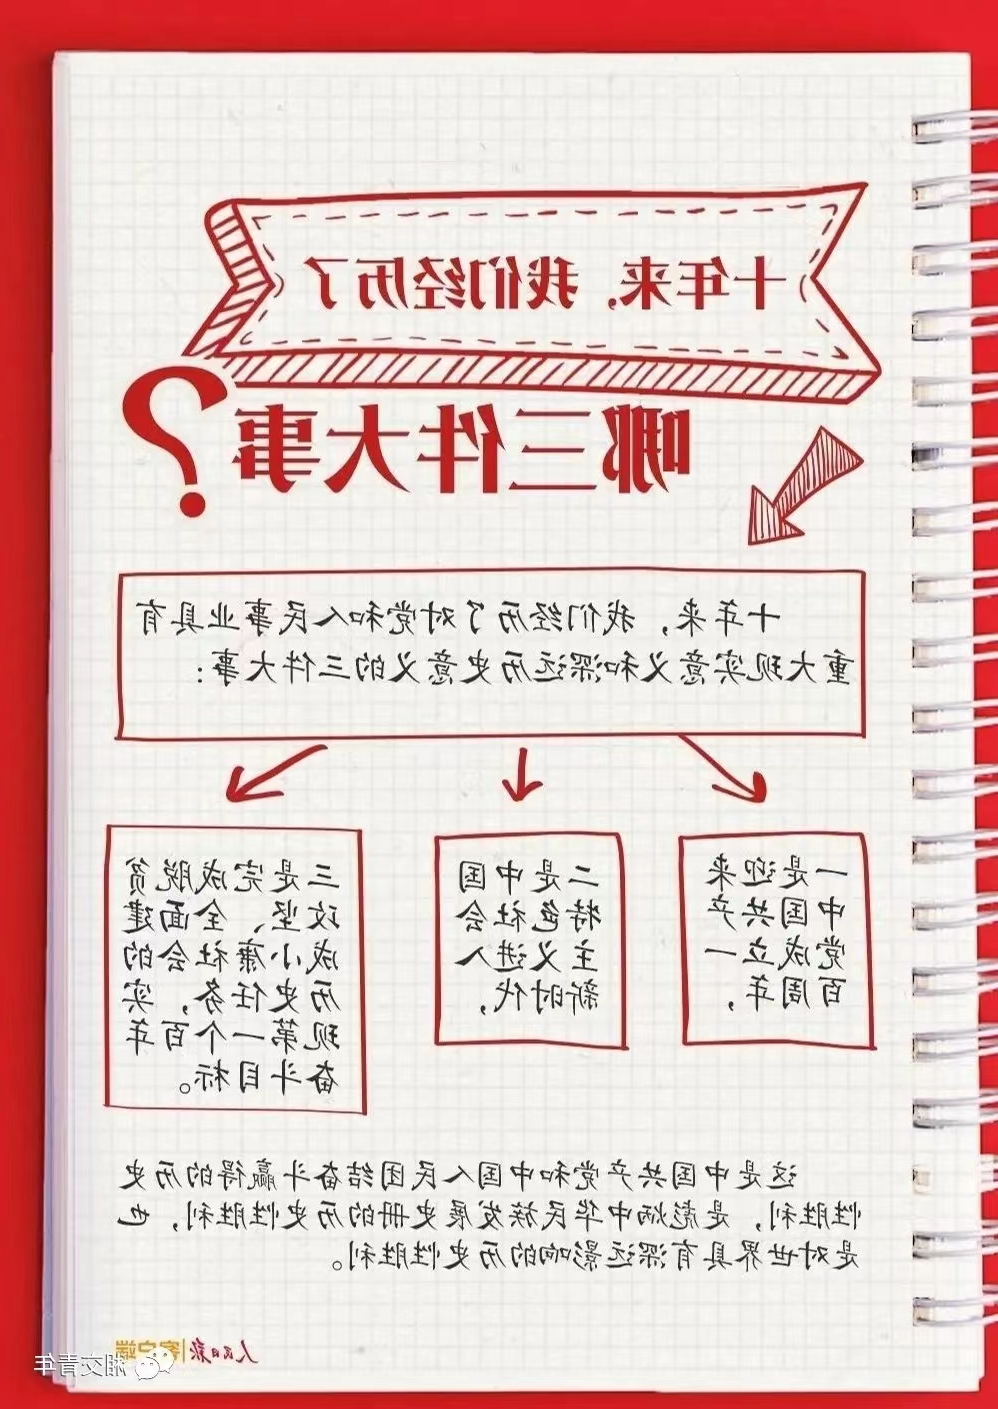 十年来，我们经历了
哪三件大事？
十年来，我们经历了对党和人民事业具有
重大现实意义和深远历史意义的三件大事：
一是迎来
中国共产
党成立一
百周年，
二是中国
特色社会
主义进入
新时代，
三是完成脱贫
攻坚、全面建
成小康社会的
历史任务，实
现第一个百年
奋斗目标。
这是中国共产党和中国人民团结奋斗赢得的历史
性胜利，是彪炳中华民族发展史册的历史性胜利，也
是对世界具有深远影响的历史性胜利。
人民日报 客户端
湘交青年